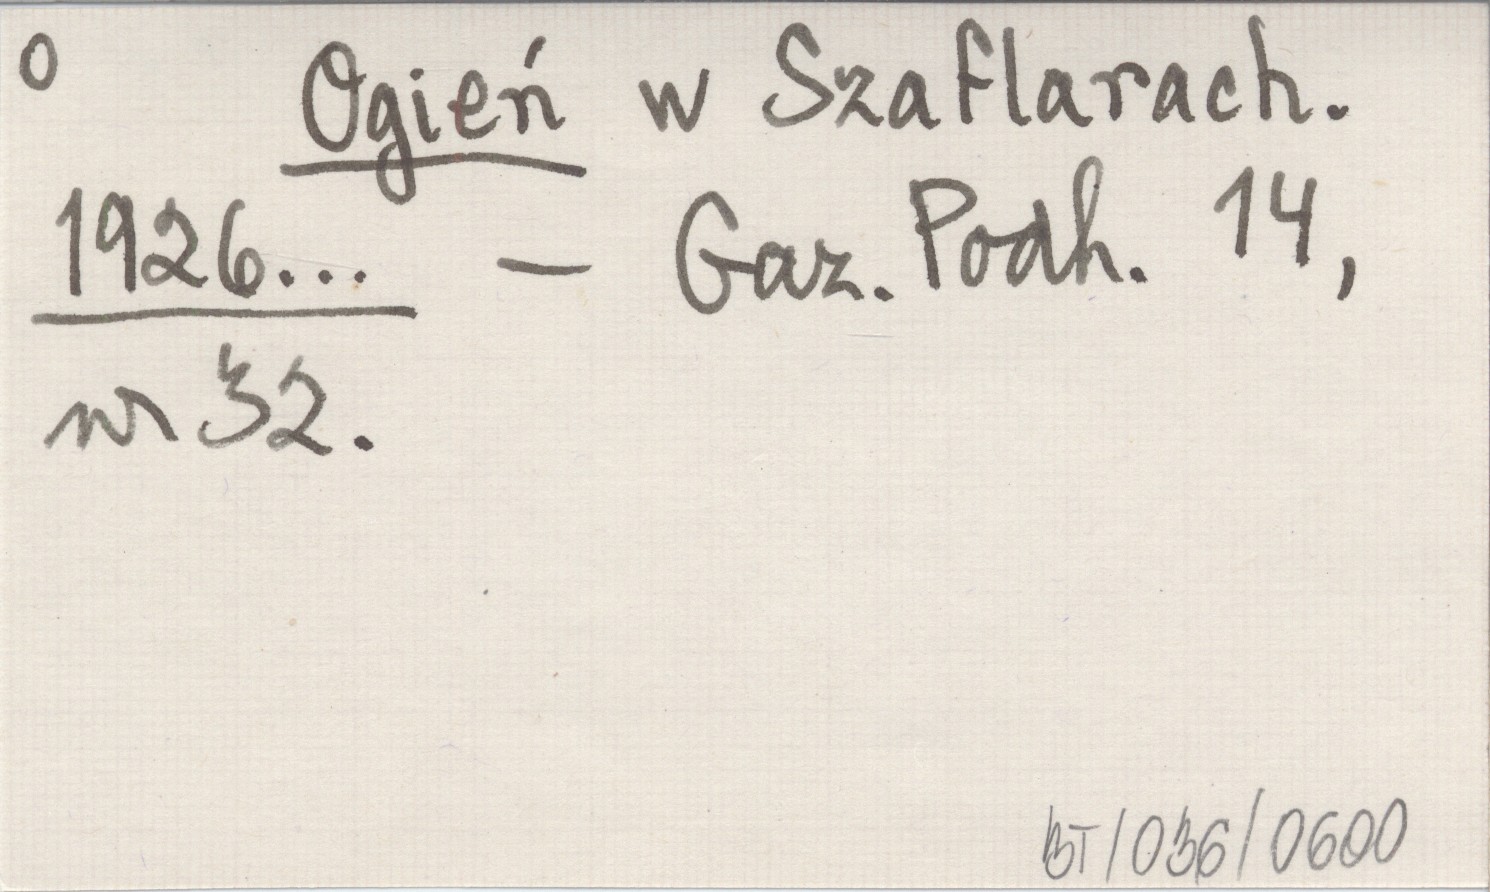 O
Ogień w Szaflarach.
1926... – Gaz. Podh. 14,
nr 32.
BT/036/0600